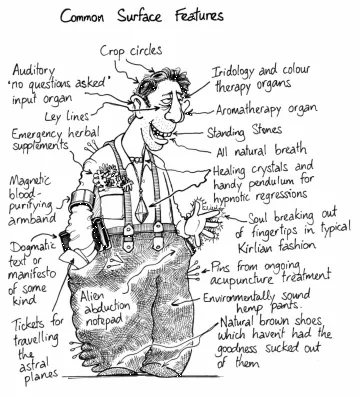 Common Surface Features
Crop circles
Auditory
'no questions asked'
input organ
Ley lines
Emergency herbal
supplements
Magnetic
blood-
purifying
armband
Dogmatic
text or
manifesto
of some
kind
Tickets for
travelling
the
astral
planes
Alien
abduction
notepad
Iridology and colour
therapy organs
Aromatherapy organ
Standing Stones
All natural breath
Healing crystals and
handy pendulum for
hypnotic regressions
Soul breaking out
of fingertips in typical
Kirlian fashion
Pins from ongoing
acupuncture treatment
Environmentally sound
hemp pants.
Natural brown shoes
which haven't had the
goodness sucked out
of them